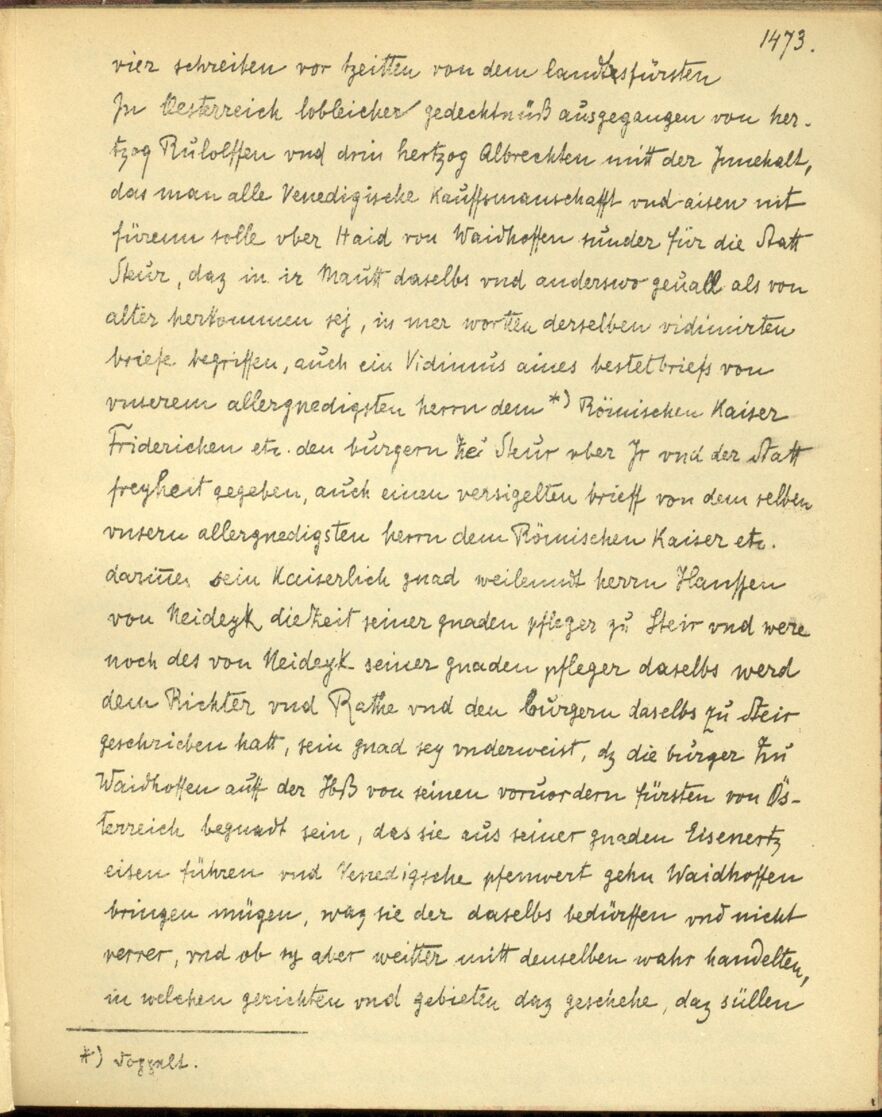 1473.
vier schreiben vor tzeitten von dem landtsfürsten
In Oesterreich lobleicher gedechtnüß ausgegangen von her-
tzog Rulolffen vnd drin hertzog Albrechten mitt der Innehalt,
das man alle Venedigische Kauffsmanschafft vnd aisen nit
fürenn solle vber Haid von Waidhoffen sunder für die Statt
Steur, daz in ir Mautt daselbs vnd anderswo geuall als von
alter herkommen sej, in mer wortten derselben vidimirten
briefe begriffen, auch ein Vidimus aines bestetbriefs von
vnserem allergnedigsten herrn dem *) Römischen Kaiser
Friderichen etc. den burgern ze Steur vber Jr vnd der Statt
freyheit gegeben, auch einen versigelten brieff von dem selben
vnsern allergnedigsten herrn dem Römischen Kaiser etc.
darinne sein Kaiserlich gnad weilenndt herrn Hanssen
von Neidegk die Zeit seiner gnaden pfleger zu Steir vnd were
noch des von Neidegk seiner gnaden pfleger daselbs werd
dem Richter vnd Rathe vnd den burgern daselbs zu Steir
geschrieben hatt, sein gnad sey vnderweist, dz die burger Zu
Waidhoffen auff der Ybß von seinen voruordern fürsten von Ös-
terreich begnadt sein, das sie aus seiner gnaden Eisenertz
eisen führen vnd Venedigsche pfenwert gehn Waidhoffen
bringen mügen, waz sie der daselbs bedürffen vnd nicht
verrer, vnd ob sy aber weitter mitt denselben wahr handelten,
in welchen gerichten vnd gebieten daz geschehe, daz süllen
*) doppelt.